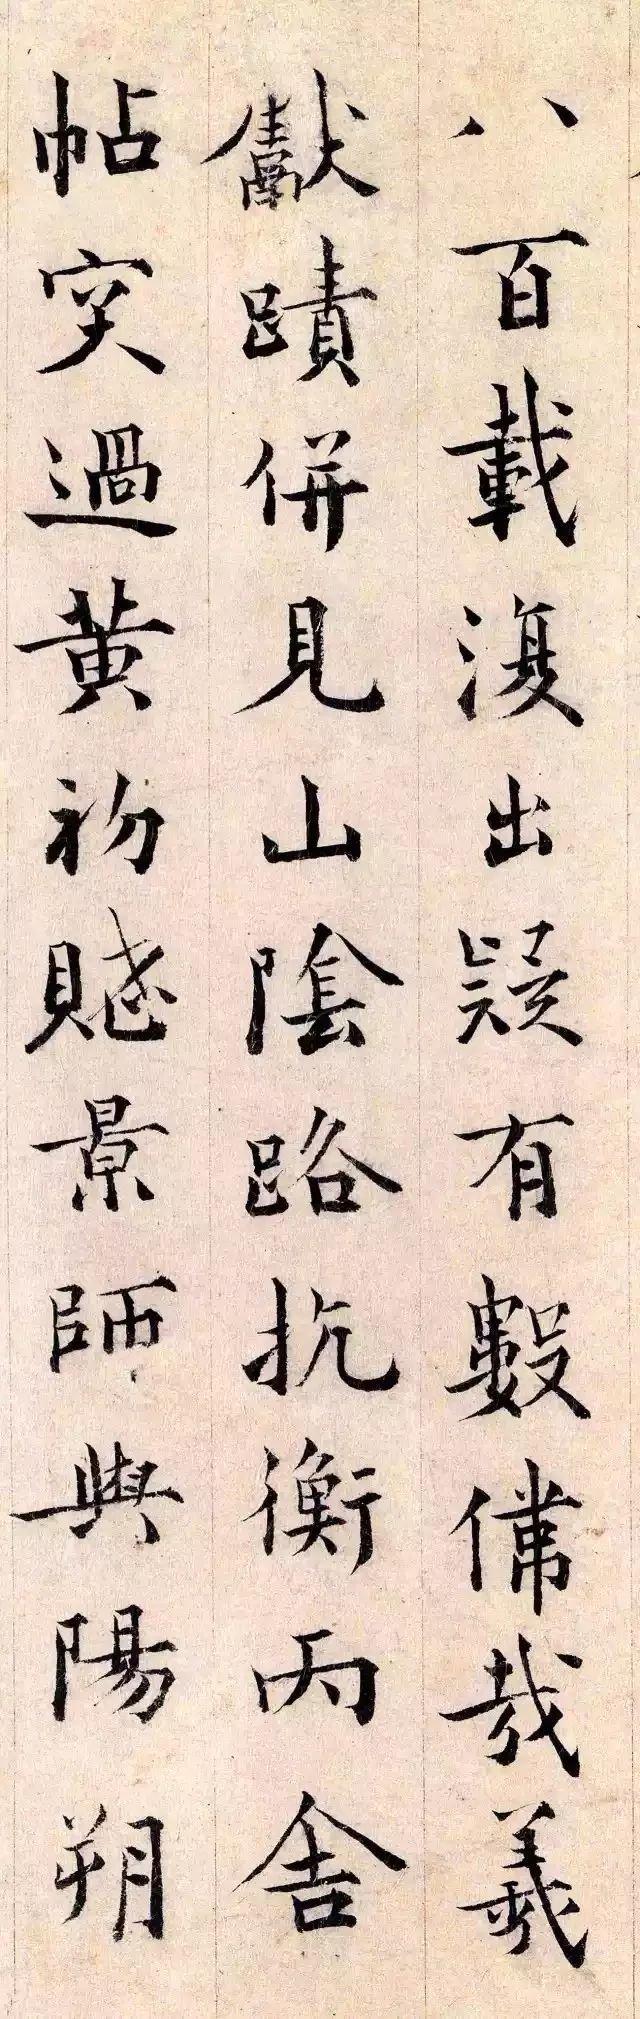 八百載復出疑有數偉哉羲
獻蹟併見山陰路抗衡丙舍
帖突過黃初賤景師與陽朔